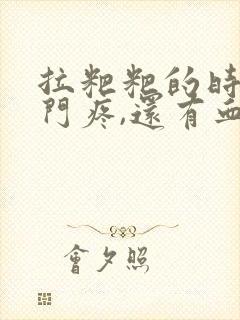 拉粑粑的時
門疼,還有血
會夕照